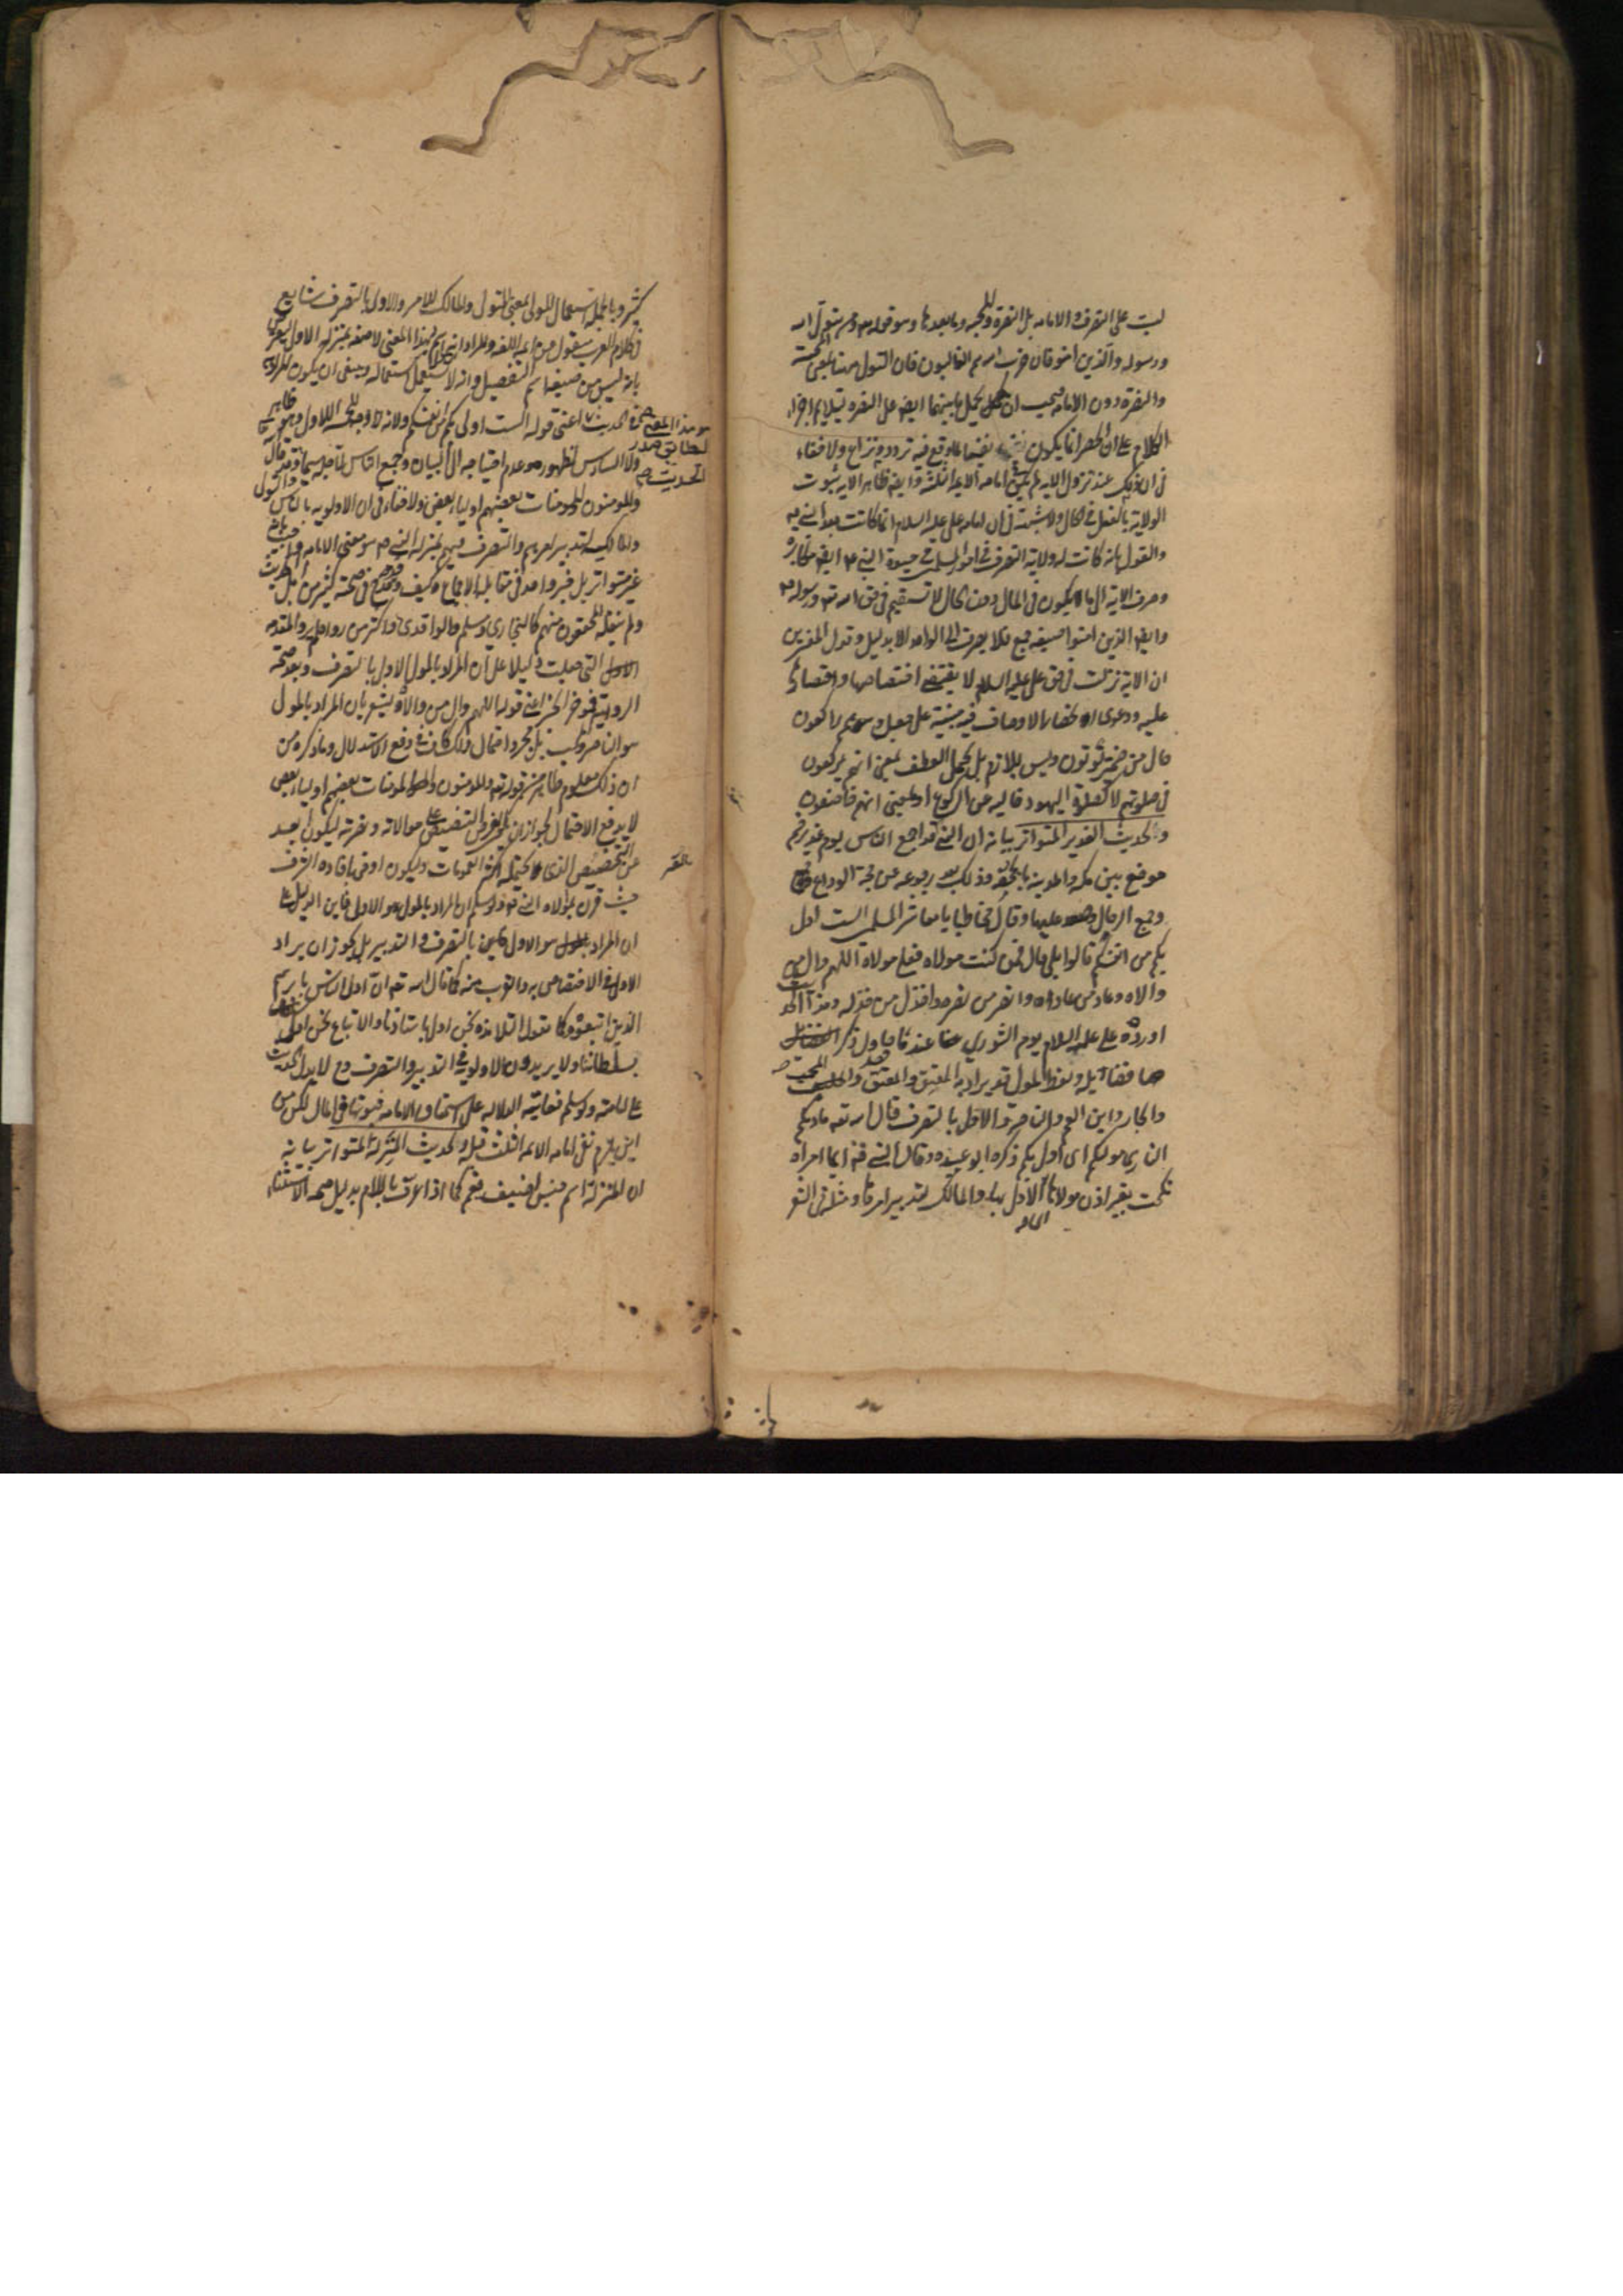 ليست على التصرف والامامة بل النصرة والمحبة وما بعدها وهو قوله تعالى ومن يتول الله
ورسوله والذين امنوا فان حزب الله هم الغالبون فان التولى ههنا بمعنى المحبة
والنصرة دون الامامة فيجب ان يحمل ما بينهما ايضا على النصرة ليتلايم اجزاء
الكلام على ان الحصر انما يكون نفيا لما وقع فيه تردد ونزاع ولا خفاء
فى ان ذلك عند نزول الاية لم يكن امامة الائمة الثلثة وايضا ظاهر الاية ثبوت
الولاية بالفعل فى الحال ولا شبهة فى ان امامة على عليه السلام انما كانت بعد النبي
والقول بانه كانت له ولاية التصرف فى امور المسلمين فى حيوة النبي ايضا مكابرة
وصرف الاية الى ما يكون فى المال دون الحال لا تستقيم فى حق الله تعالى ورسوله
وايضا الذين امنوا صيغة جمع فلا يصرف الى الواحد الا بدليل وقول المفسرين
ان الاية نزلت فى حق على عليه السلام لا يقتضى اختصاصها واقتصارها
عليه ودعوى انحصار الاوصاف فيه مبنية على جعل وهم راكعون
حال من ضمير يؤتون وليس بلازم بل يحتمل العطف بمعنى انهم يركعون
فى صلوتهم لا كصلوة اليهود خالية عن الركوع او بمعنى انهم خاضعون
والحديث الغدير المتواتر بيانه ان النبي قد اجمع الناس يوم غدير خم
موضع بين مكة والمدينة بالجحفة وذلك بعد رجوعه عن حجة الوداع
وجمع الرحال وصعد عليها وقال مخاطبا يا معاشر المسلمين الست اولى
بكم من انفسكم قالوا بلى قال فمن كنت مولاه فعلى مولاه اللهم وال من
والاه وعاد من عاداه وانصر من نصره واخذل من خذله وهذا الحديث
اورده على عليه السلام يوم الشورى عندما حاول ذكر
فضائله ولفظ المولى قد يراد به المعتق والمعتق والحليف
والجار وابن العم والناصر والاولى بالتصرف قال الله تعالى ماويكم
النار هى موليكم اى اولى بكم ذكره ابو عبيدة وقال النبي ايما امراة
نكحت بغير اذن مولاها اى الاولى بها والمالك لتدبير امرها ومثله فى الشعر
كثير وبالجملة استعمال المولى بمعنى المتولى والمالك للامر والاولى بالتصرف شايع
فى كلام العرب منقول من ائمة اللغة والمراد انه اسم لهذا المعنى لا صفة بمنزلة الاولى ليعترض
بانه ليس من صيغة اسم التفضيل وانه لا يستعمل استعماله وينبغى ان يكون المراد
فى الحديث هو هذا المعنى ليطابق صدر الحديث اعنى قوله الست اولى بكم من انفسكم ولانه لا وجه للخمسة الاول وهو ظاهر
ولا السادس لظهوره وعدم احتياجه الى البيان وجمع الناس لاجله سيما وقد قال
والمؤمنون والمومنات بعضهم اولياء بعض ولا خفاء فى ان الاولوية بالناس والتولى
والمالكية لتدبير امرهم والتصرف فيهم بمنزلة النبي هو معنى الامامة
غير متواتر بل خبر واحد فى مقابلة الاجماع وكيف وقد قدح فى صحته كثير من اهل الحديث
ولم ينقله المحققون منهم كالبخارى ومسلم والواقدى واكثر من رواه لم يرو المقدمة
التى جعلت دليلا على ان المراد بالمولى الاولى بالتصرف وبعد صحة
الرواية فمؤخر الخبر اعنى قوله اللهم وال من والاه يشعر بان المراد بالمولى
هو الناصر والمحب بل مجرد احتمال ذلك كاف فى دفع الاستدلال وما ذكره من
ان ذلك معلوم ظاهر من قوله تعالى والمومنون والمومنات بعضهم اولياء بعض
لا يدفع الاحتمال لجواز ان يكون الغرض التنصيص على موالاته ونصرته ليكون ابعد
عن التخصيص الذى يحتمله اكثر العمومات وليكون اوفى بافادة الشرف
حيث قرن بموالاة النبي ولو سلم ان المراد بالمولى هو الاولى فاين الدليل على
ان المراد هو الاولى بالتصرف والتدبير بل يجوز ان يراد
الاولى فى الاختصاص به والقرب منه كما قال الله تعالى ان اولى الناس بابرهيم
للذين اتبعوه وكما يقول التلامذة نحن اولى باستاذنا والاتباع نحن اولى
بسلطاننا ولا يريدون الاولوية فى التدبير والتصرف وح لا يدل الحديث
على امامته ولو سلم فغايته الدلالة على استحقاق الامامة وثبوتها فى المال لكن من
اين يلزم نفى امامة الائمة الثلثة قبله والحديث المنزلة المتواتر بيانه
ان المنزلة اسم جنس اضيف فعم كما اذا عرف باللام بدليل صحة الاستثناء